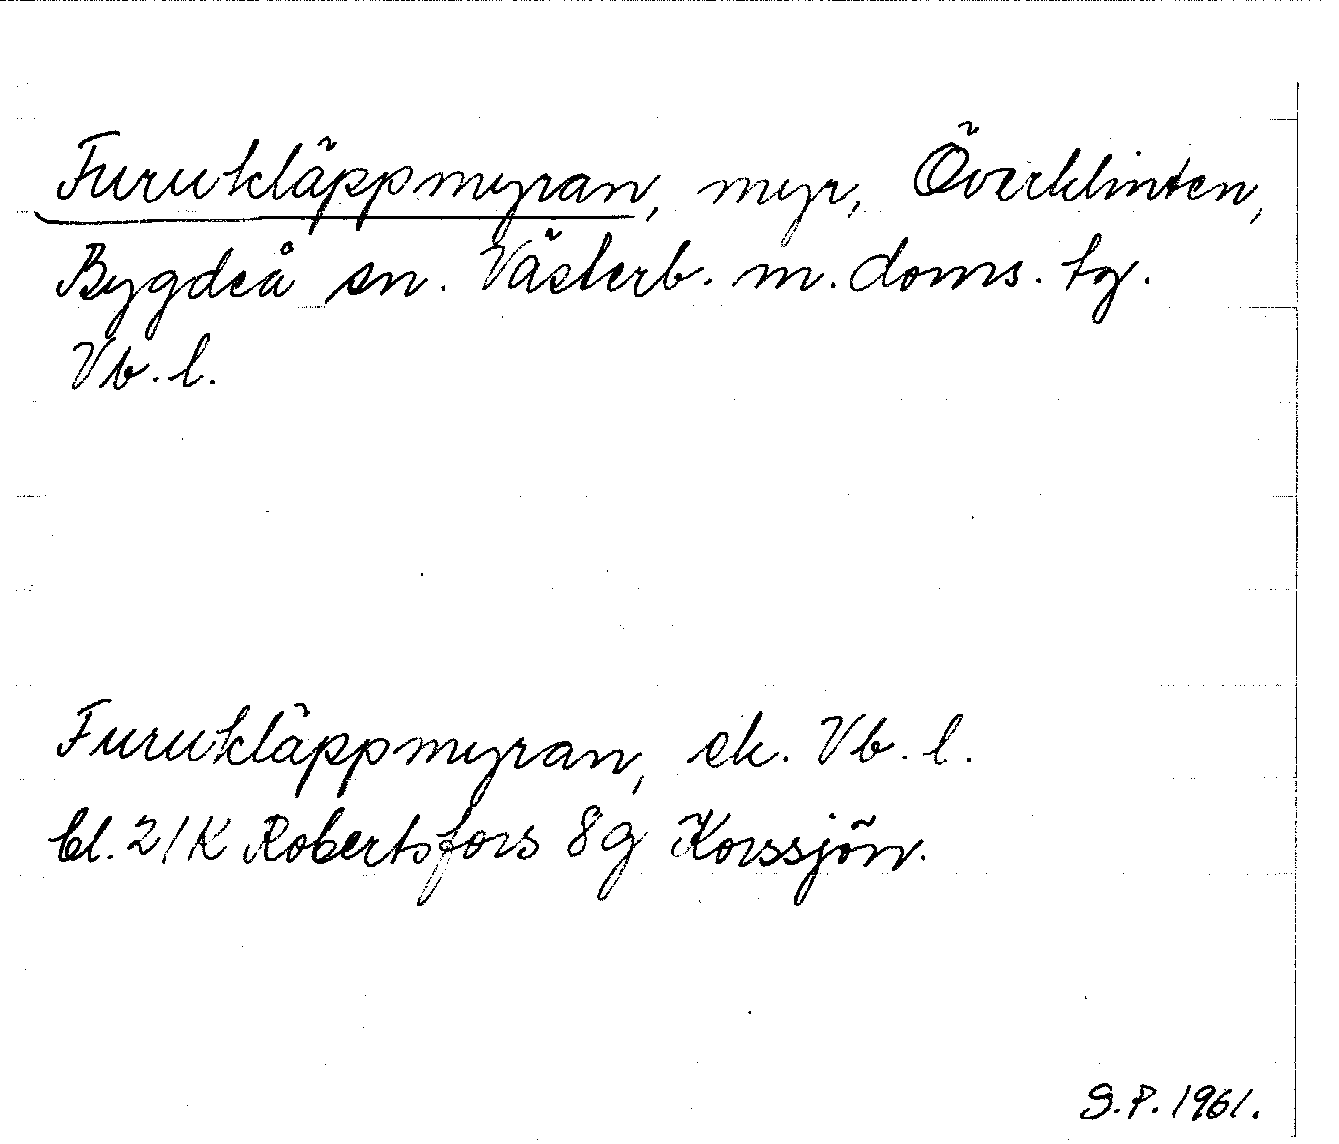 Furukläppmyran, myr, Överklinten,
Bygdeå sn. Västerb. m. doms. tg.
Vb. l.
Furukläppmyran, ek. Vb. l.
bl. 21K Robertsfors 8g Korssjön.
S.P. 1961.